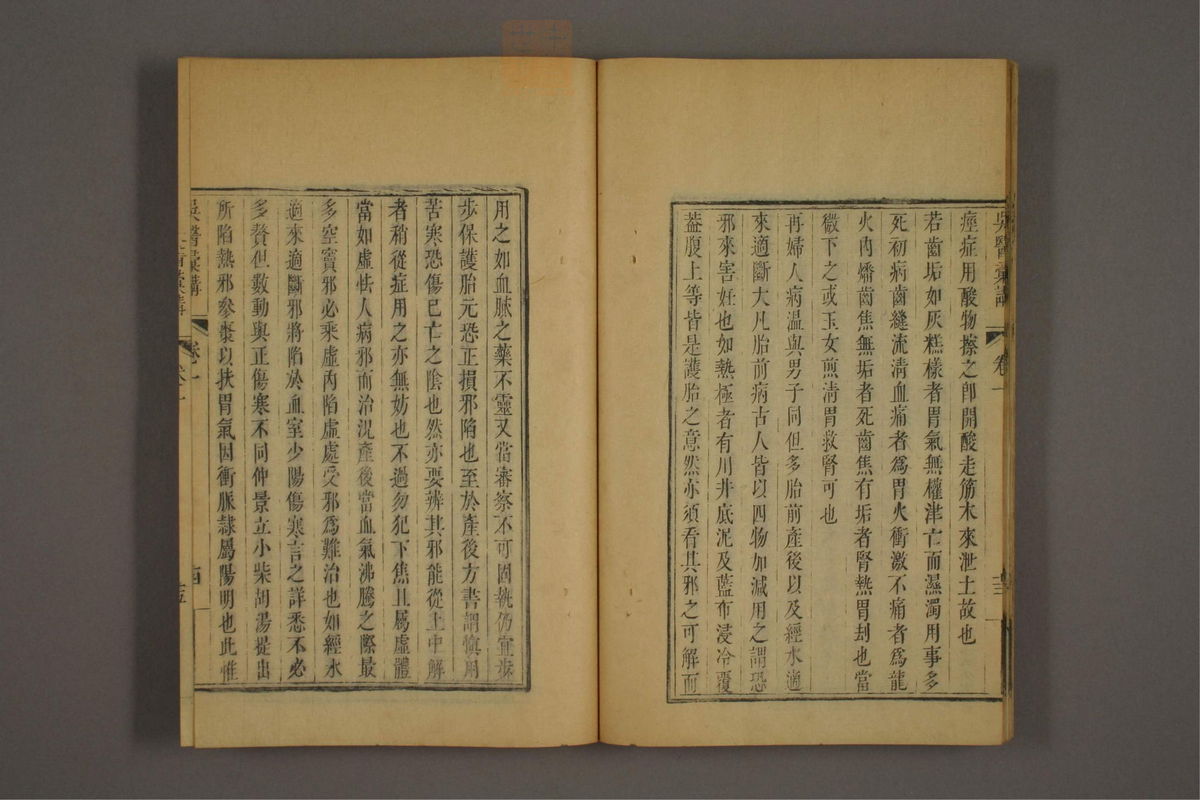 吳醫彙講 卷一
痙症用酸物擦之即開酸走筋木來泄土故也
若齒垢如灰糕樣者胃氣無權津亡而濕濁用事多
死初病齒縫流清血痛者為胃火衝激不痛者為龍
火內燔齒焦無垢者死齒焦有垢者腎熱胃刦也當
微下之或玉女煎清胃救腎可也
再婦人病温與男子同但多胎前產後以及經水適
來適斷大凡胎前病古人皆以四物加減用之謂恐
邪來害妊也如熱極者有用井底泥及藍布浸冷覆
葢腹上等皆是護胎之意然亦須看其邪之可解而
用之如血膩之藥不靈又當審察不可固執仍宜步
步保護胎元恐正損邪陷也至於產後方書謂愼用
苦寒恐傷已亡之陰也然亦要辨其邪能從上中解
者稍從症用之亦無妨也不過勿犯下焦且屬虛體
當如虛怯人病邪而治況產後當血氣沸騰之際最
多空竇邪必乘虛內陷虛處受邪為難治也如經水
適來適斷邪將陷於血室少陽傷寒言之詳悉不必
多贅但數動與正傷寒不同仲景立小柴胡湯提出
所陷熱邪參棗以扶胃氣因衝脈隸屬陽明也此惟
吳醫彙講 卷一